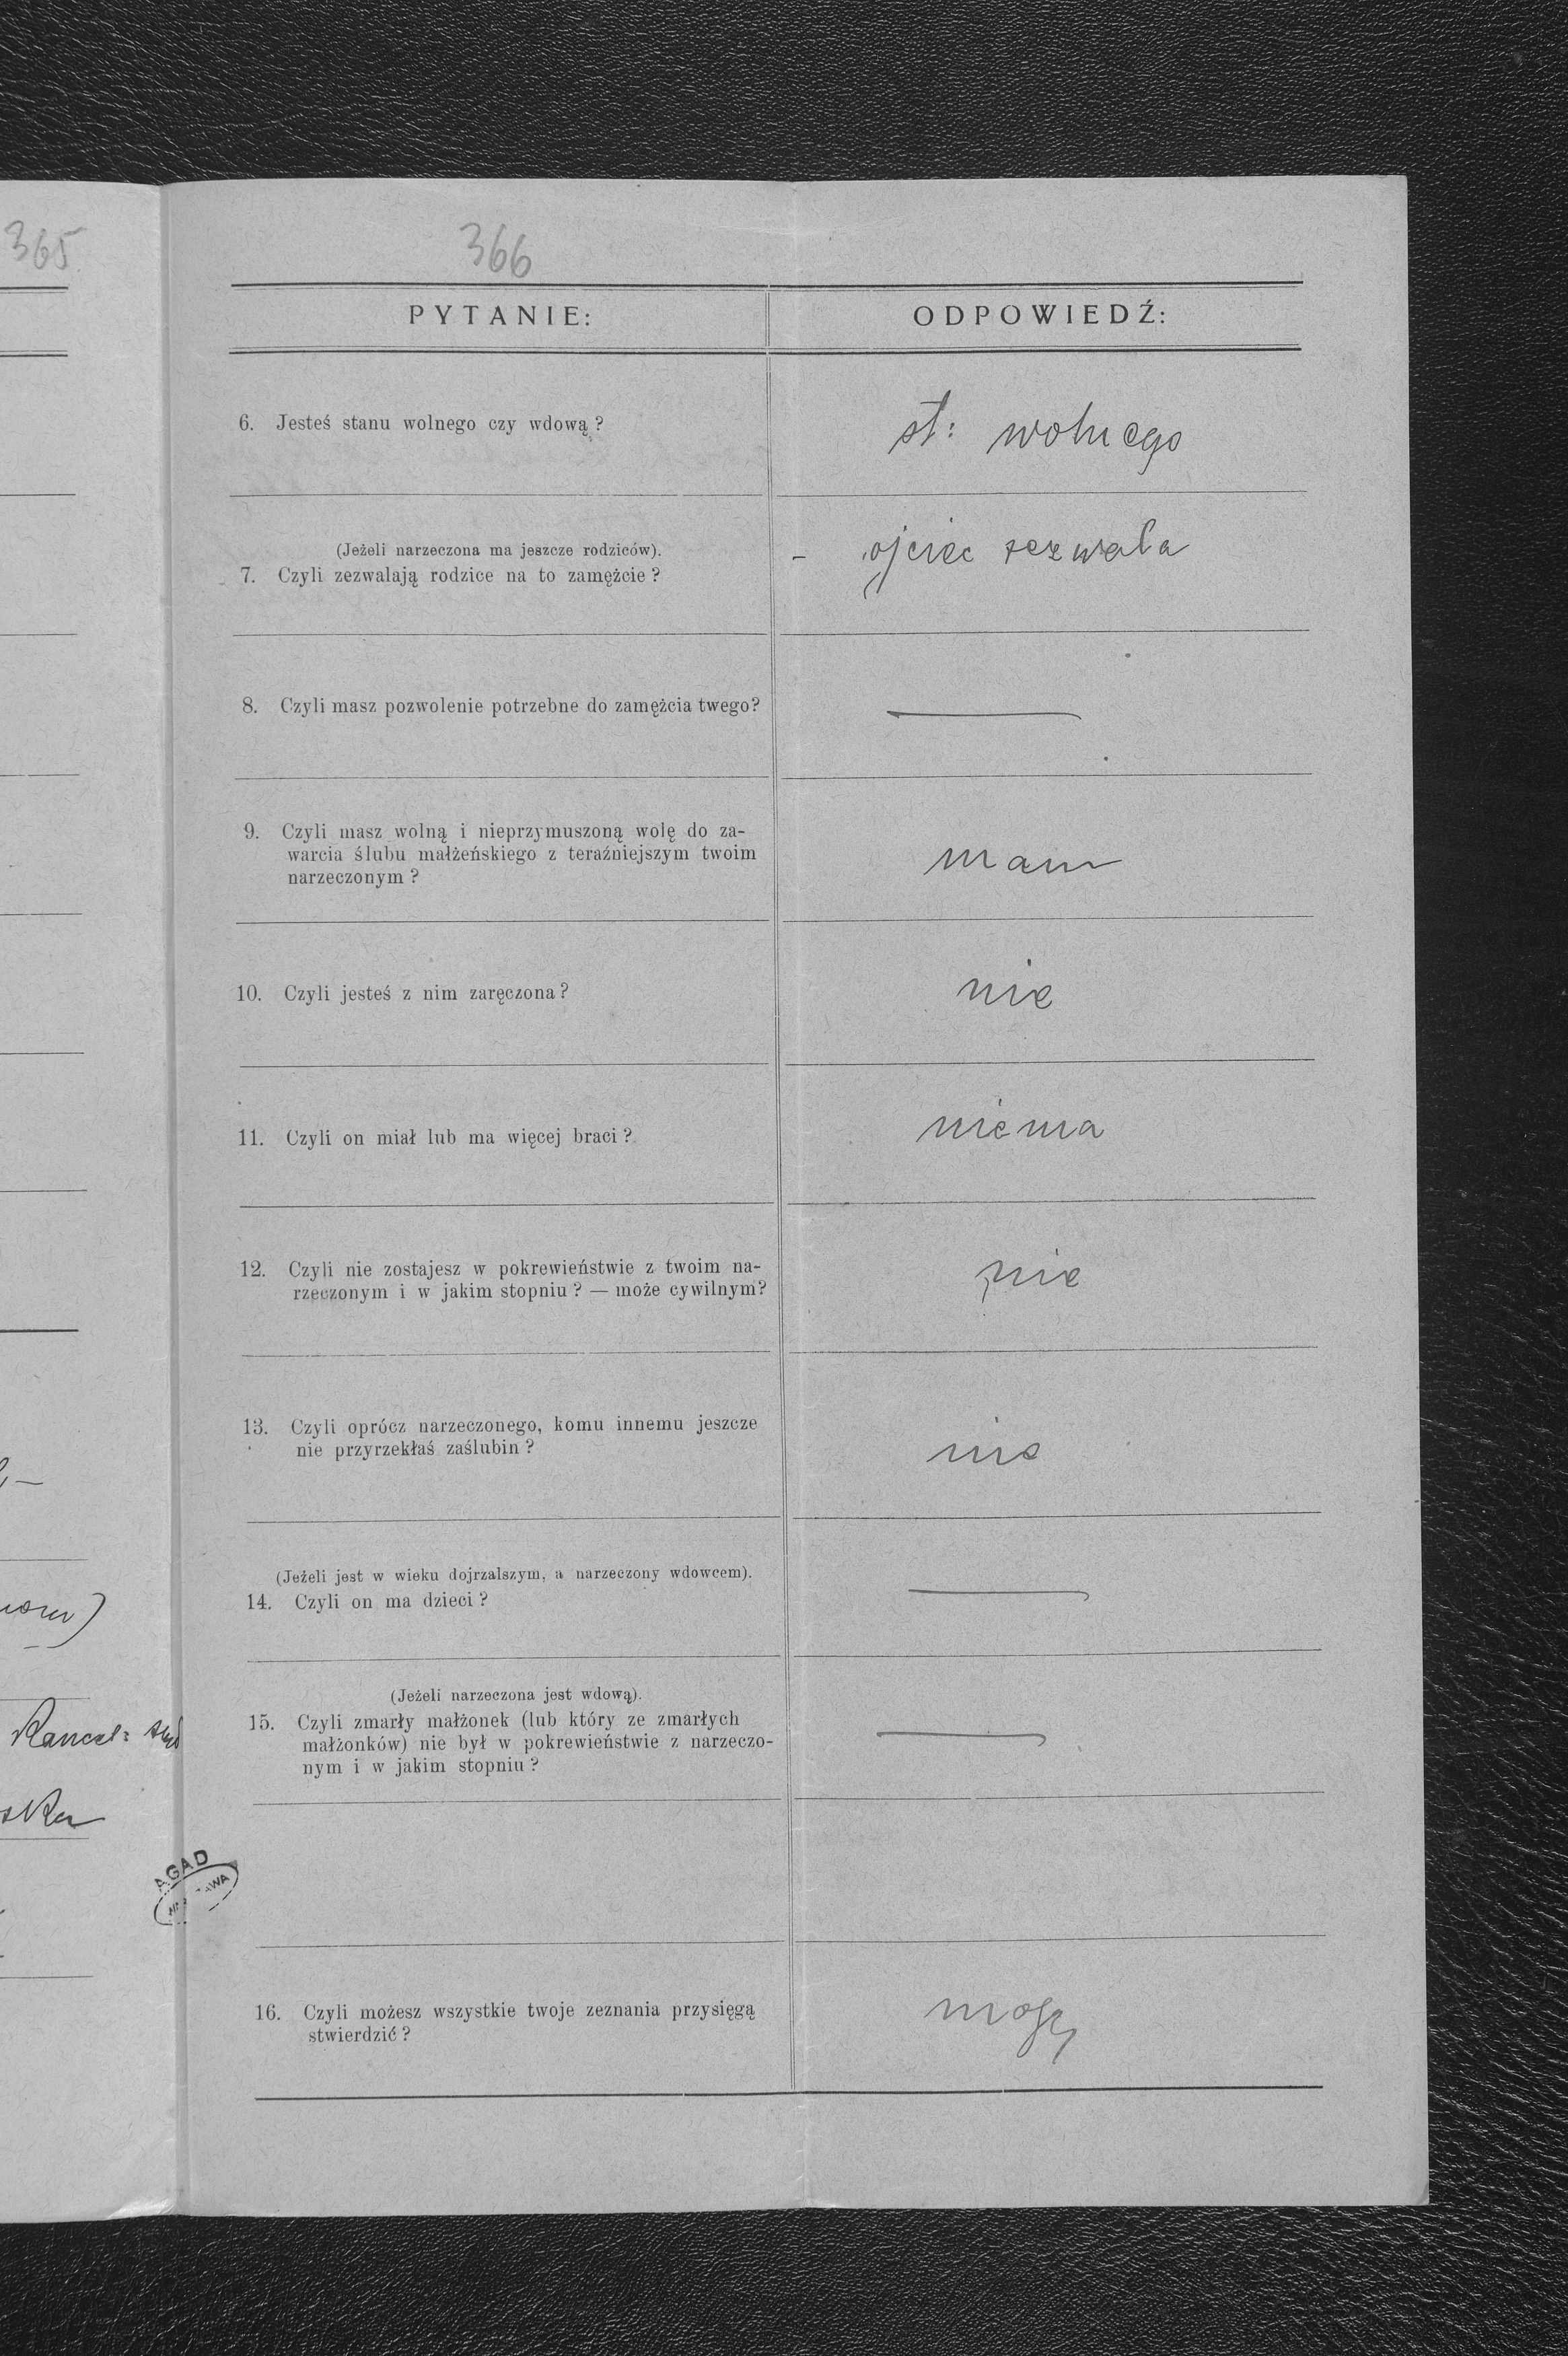 365
366
PYTANIE:
ODPOWIEDŹ:
6. Jesteś stanu wolnego czy wdową?
st: wolnego
(Jeżeli narzeczona ma jeszcze rodziców).
7. Czyli zezwalają rodzice na to zamężcie?
- ojciec zezwala
8. Czyli masz pozwolenie potrzebne do zamężcia twego?
—
9. Czyli masz wolną i nieprzymuszoną wolę do za-
warcia ślubu małżeńskiego z teraźniejszym twoim
narzeczonym?
mam
10. Czyli jesteś z nim zaręczona?
nie
11. Czyli on miał lub ma więcej braci?
niema
12. Czyli nie zostajesz w pokrewieństwie z twoim na-
rzeczonym i w jakim stopniu? — może cywilnym?
nie
13. Czyli oprócz narzeczonego, komu innemu jeszcze
nie przyrzekłaś zaślubin?
nie
(Jeżeli jest w wieku dojrzalszym, a narzeczony wdowcem).
14. Czyli on ma dzieci?
—
(Jeżeli narzeczona jest wdową).
15. Czyli zmarły małżonek (lub który ze zmarłych
małżonków) nie był w pokrewieństwie z narzeczo-
nym i w jakim stopniu?
—
16. Czyli możesz wszystkie twoje zeznania przysięgą
stwierdzić?
mogę
Kancel:
ska
AGAD